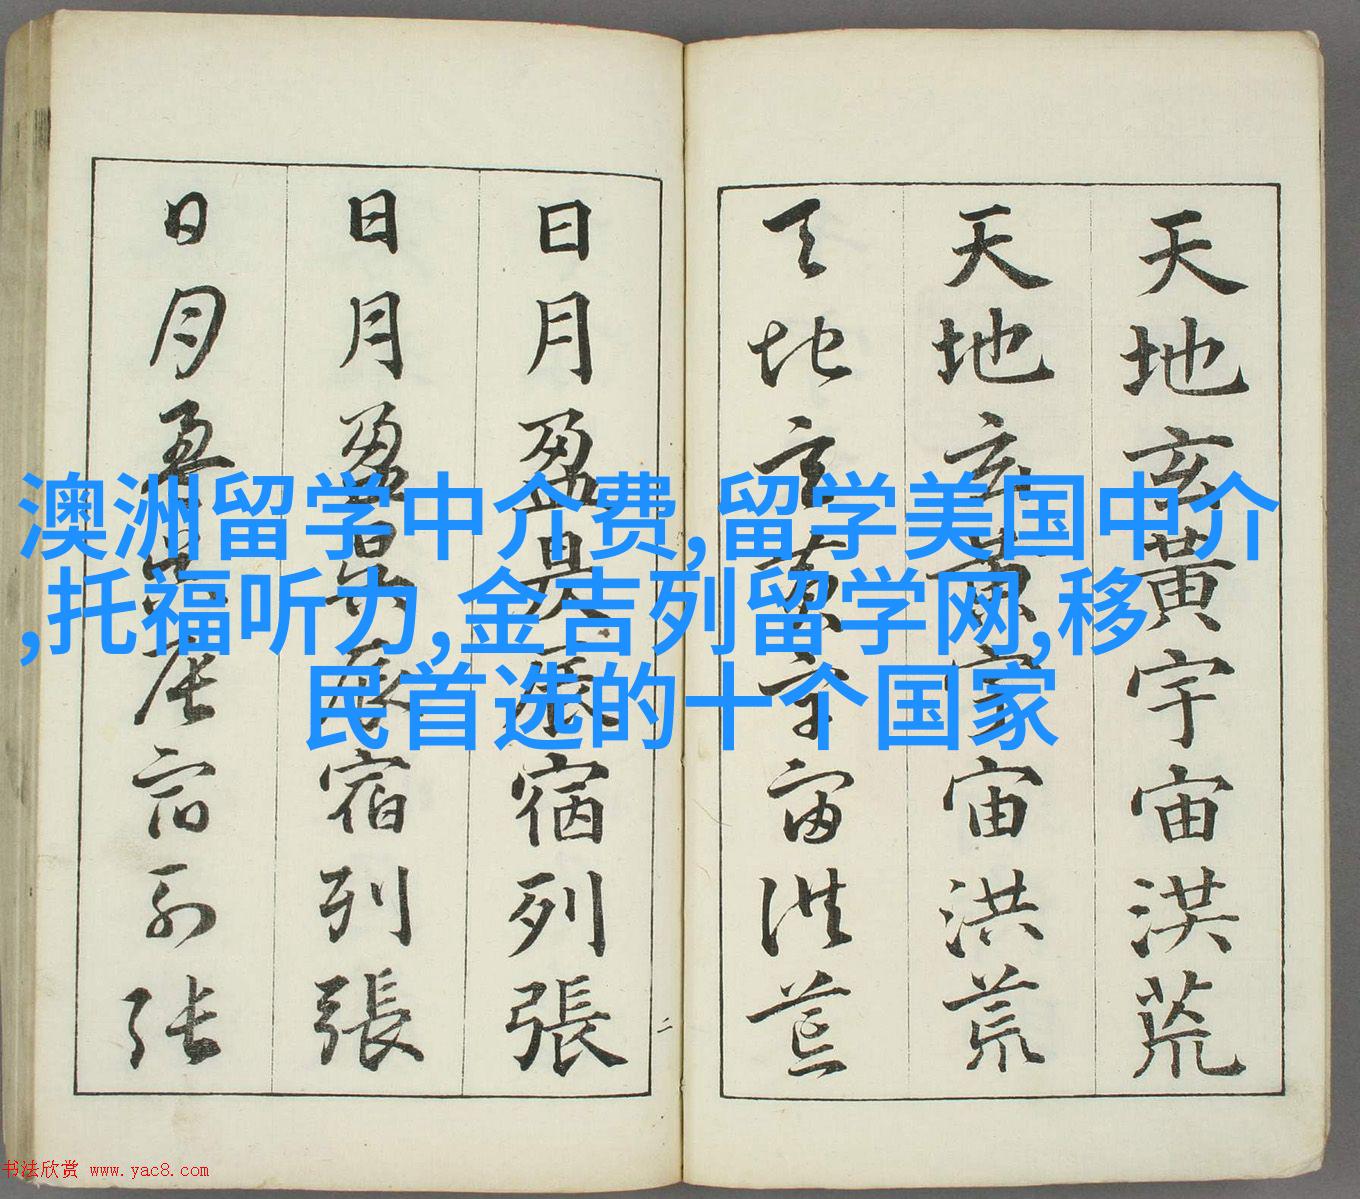 天地玄黃宇宙洪荒
天地玄黃宇宙洪荒
天地玄黃宇宙洪荒
日月盈昃辰宿列張
日月盈昃辰宿列張
日月盈昃辰宿列張
二
澳洲留学中介费,留学美国中介
,托福听力,金吉列留学网,移
民首选的十个国家
书法欣赏 www.yac8.com